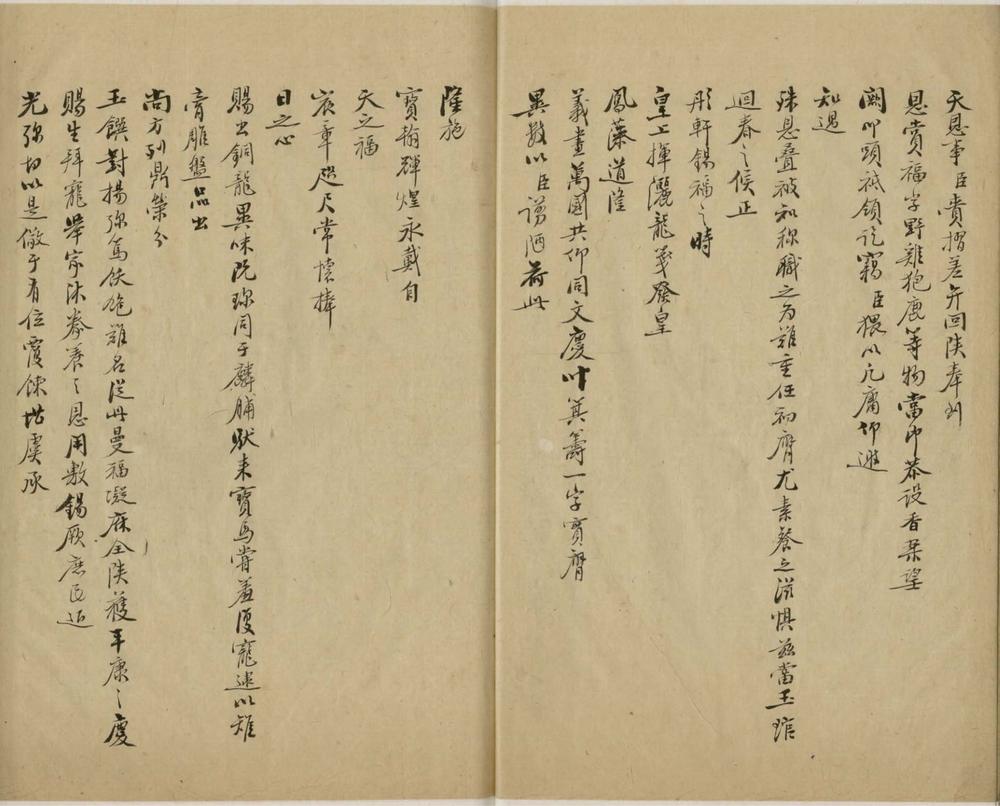 天恩事臣賫摺差弁回陕奉到
恩賞福字野雞狍鹿等物當即恭設香案望
闕叩頭祗領訖竊臣猥以凡庸仰邀
知遇
殊恩叠被知称職之为難重任初膺尤素餐之滋惧兹當玉琯
迴春之候正
彤軒錫福之時
皇上揮灑龍箋發皇
鳳藻道隆
義畫萬國共仰同文慶叶箕籌一字寳膺
異数以臣谫陋荷此
隆施
寳翰輝煌永戴自
天之福
宸章咫尺常懷捧
日之心
賜出銅龍異味既珍同于麟脯馱来寳馬嘗羞復寵逾以雉
膏雕盤品出
尚方列鼎榮分
玉饌對揚弥篤飫飽難名從此曼福凝庥全陕獲平康之慶
賜生拜寵舉家沐豢养之恩用敷錫厥庶民近
光弥切以是儆于有位覆餗堪虞承